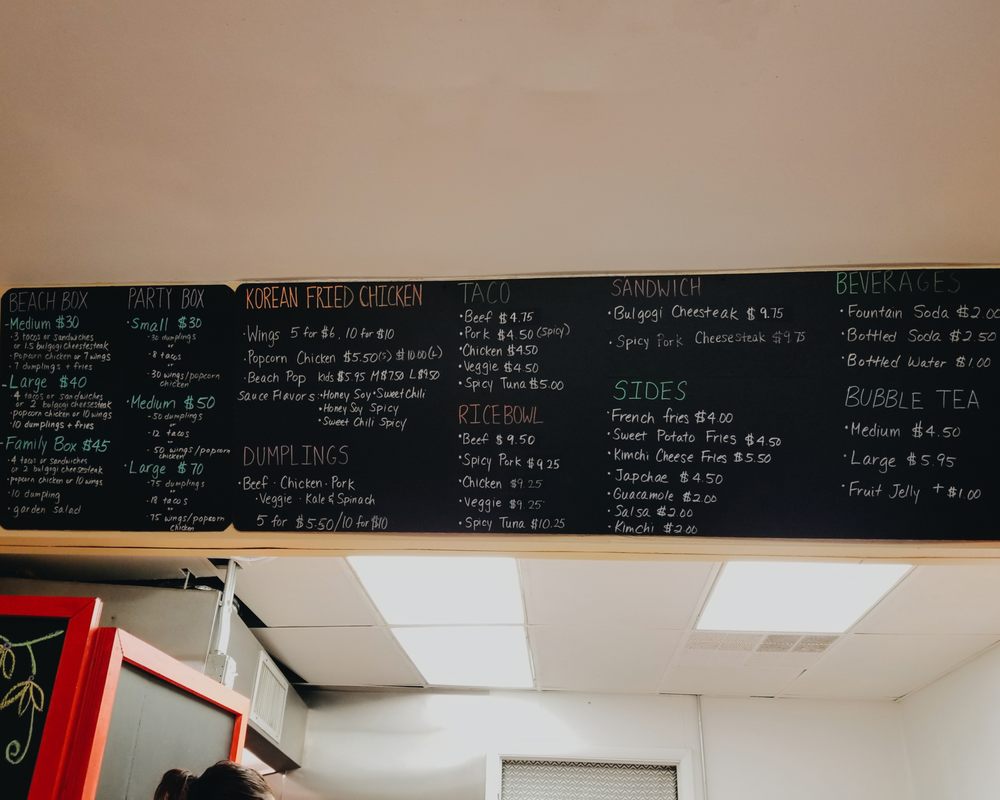 BEACH BOX
-Medium $30
·3 tacos or sandwiches
or 1.5 bulgogi cheesesteak
·Popcorn chicken or 7 wings
·7 dumplings + fries
-Large $40
·4 tacos or sandwiches
or 2 bulgogi cheesesteak
·popcorn chicken or 10 wings
·10 dumplings + fries
-Family Box $45
·4 tacos or sandwiches
or 2 bulgogi cheesesteak
·popcorn chicken or 10 wings
·10 dumpling
·garden salad
PARTY BOX
·Small $30
dumplings
or
·8 tacos
or
·30 wings/popcorn
chicken
·Medium $50
·50 dumplings
or
·12 tacos
or
·50 wings/popcorn
chicken
·Large $70
·75 dumplings
or
·18 tacos
or
·75 wings/popcorn
chicken
KOREAN FRIED CHICKEN
·Wings 5 for $6, 10 for $10
·Popcorn Chicken $5.50(s) $10.00(L)
·Beach Pop kids $5.95 M$7.50 L$9.50
Sauce Flavors: ·Honey Soy ·Sweet Chili
·Honey Soy Spicy
·Sweet Chili Spicy
DUMPLINGS
·Beef · Chicken · Pork
·Veggie · Kale & Spinach
5 for $5.50/10 for $10
TACO
·Beef $4.75
·Pork $4.50 (spicy)
·Chicken $4.50
·Veggie $4.50
·Spicy Tuna $5.00
RICE BOWL
·Beef $9.50
·Spicy Pork $9.25
·Chicken $9.25
·Veggie $9.25
·Spicy Tuna $10.25
SANDWICH
·Bulgogi Cheesteak $9.75
·Spicy Pork Cheesesteak $9.75
SIDES
·French fries $4.00
·Sweet Potato Fries $4.50
·Kimchi Cheese Fries $5.50
·Japchae $4.50
·Guacamole $2.00
·Salsa $2.00
·Kimchi $2.00
BEVERAGES
·Fountain Soda $2.00
·Bottled Soda $2.50
·Bottled Water $1.00
BUBBLE TEA
·Medium $4.50
·Large $5.95
·Fruit Jelly +$1.00